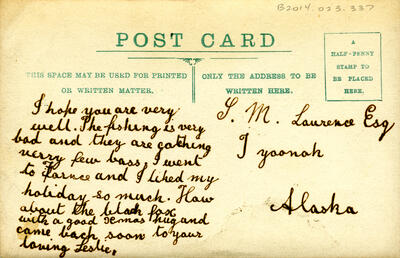 B2014.023.337
POST CARD
A
HALF-PENNY
STAMP TO
BE PLACED
HERE.
THIS SPACE MAY BE USED FOR PRINTED
OR WRITTEN MATTER.
ONLY THE ADDRESS TO BE
WRITTEN HERE.
I hope you are very
well. The fishing is very
bad and they are catching
verry few bass, I went
to and I liked my
holiday so much. How
about the black fox
with a good Xomas hug and
come back soon to your
loving Leslie.
S. M. Laurence Esq
Tyoonok
Alaska